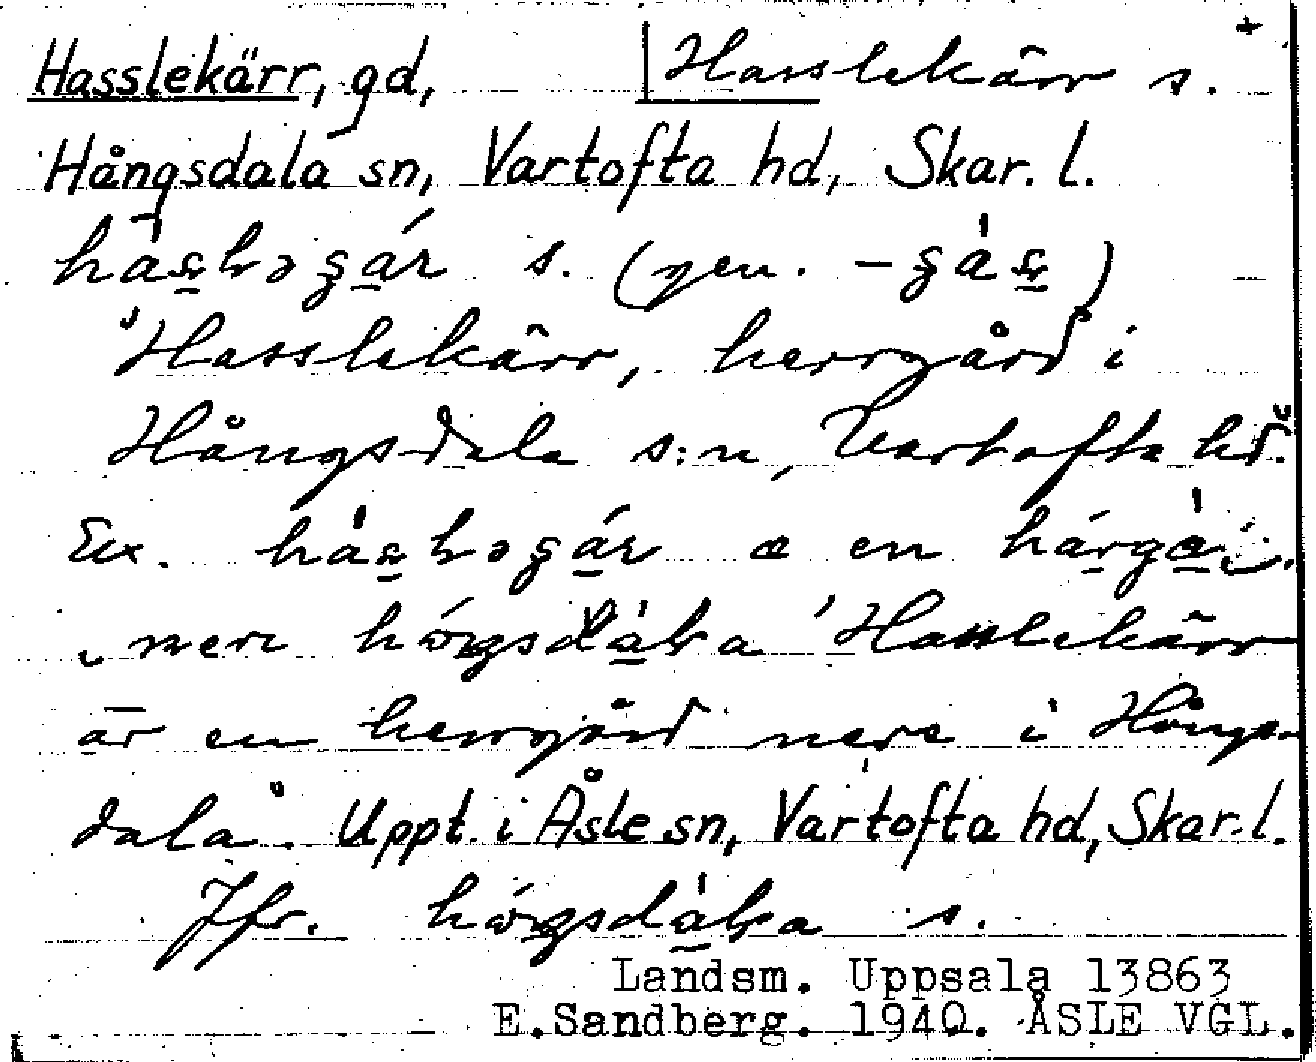 Hasslekärr, gd, Hasslekärr s.
Hångsdala sn, Vartofta hd, Skar. l.
s. (gen.
"Hasslekärr, herrgård i
Hångsdala s:n, Vartofta hd."
Ex. æ en
Hasslekärr
är en herrgård nere i Hångs-
dala". Uppt. i Åsle sn, Vartofta hd, Skar. l.
Jfr. s.
Landsm. Uppsala 13863
E.Sandberg. 1940. ÅSLE VGL.